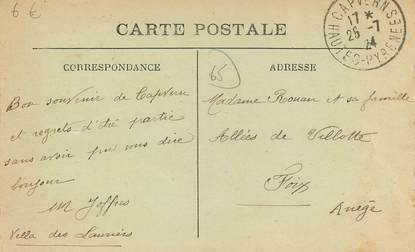 6 €
CARTE POSTALE
CAPVERN
HAUTES-PYRÉNÉES
17 *
26 -7
24
CORRESPONDANCE
65
ADRESSE
Bon souvenir de Capvern
et regrets d'être partie
sans avoir pu vous dire
bonjour
M Joffres
Villa des Lauriers
Madame Rouan et sa famille
Allées de Villote
Foix
Ariège